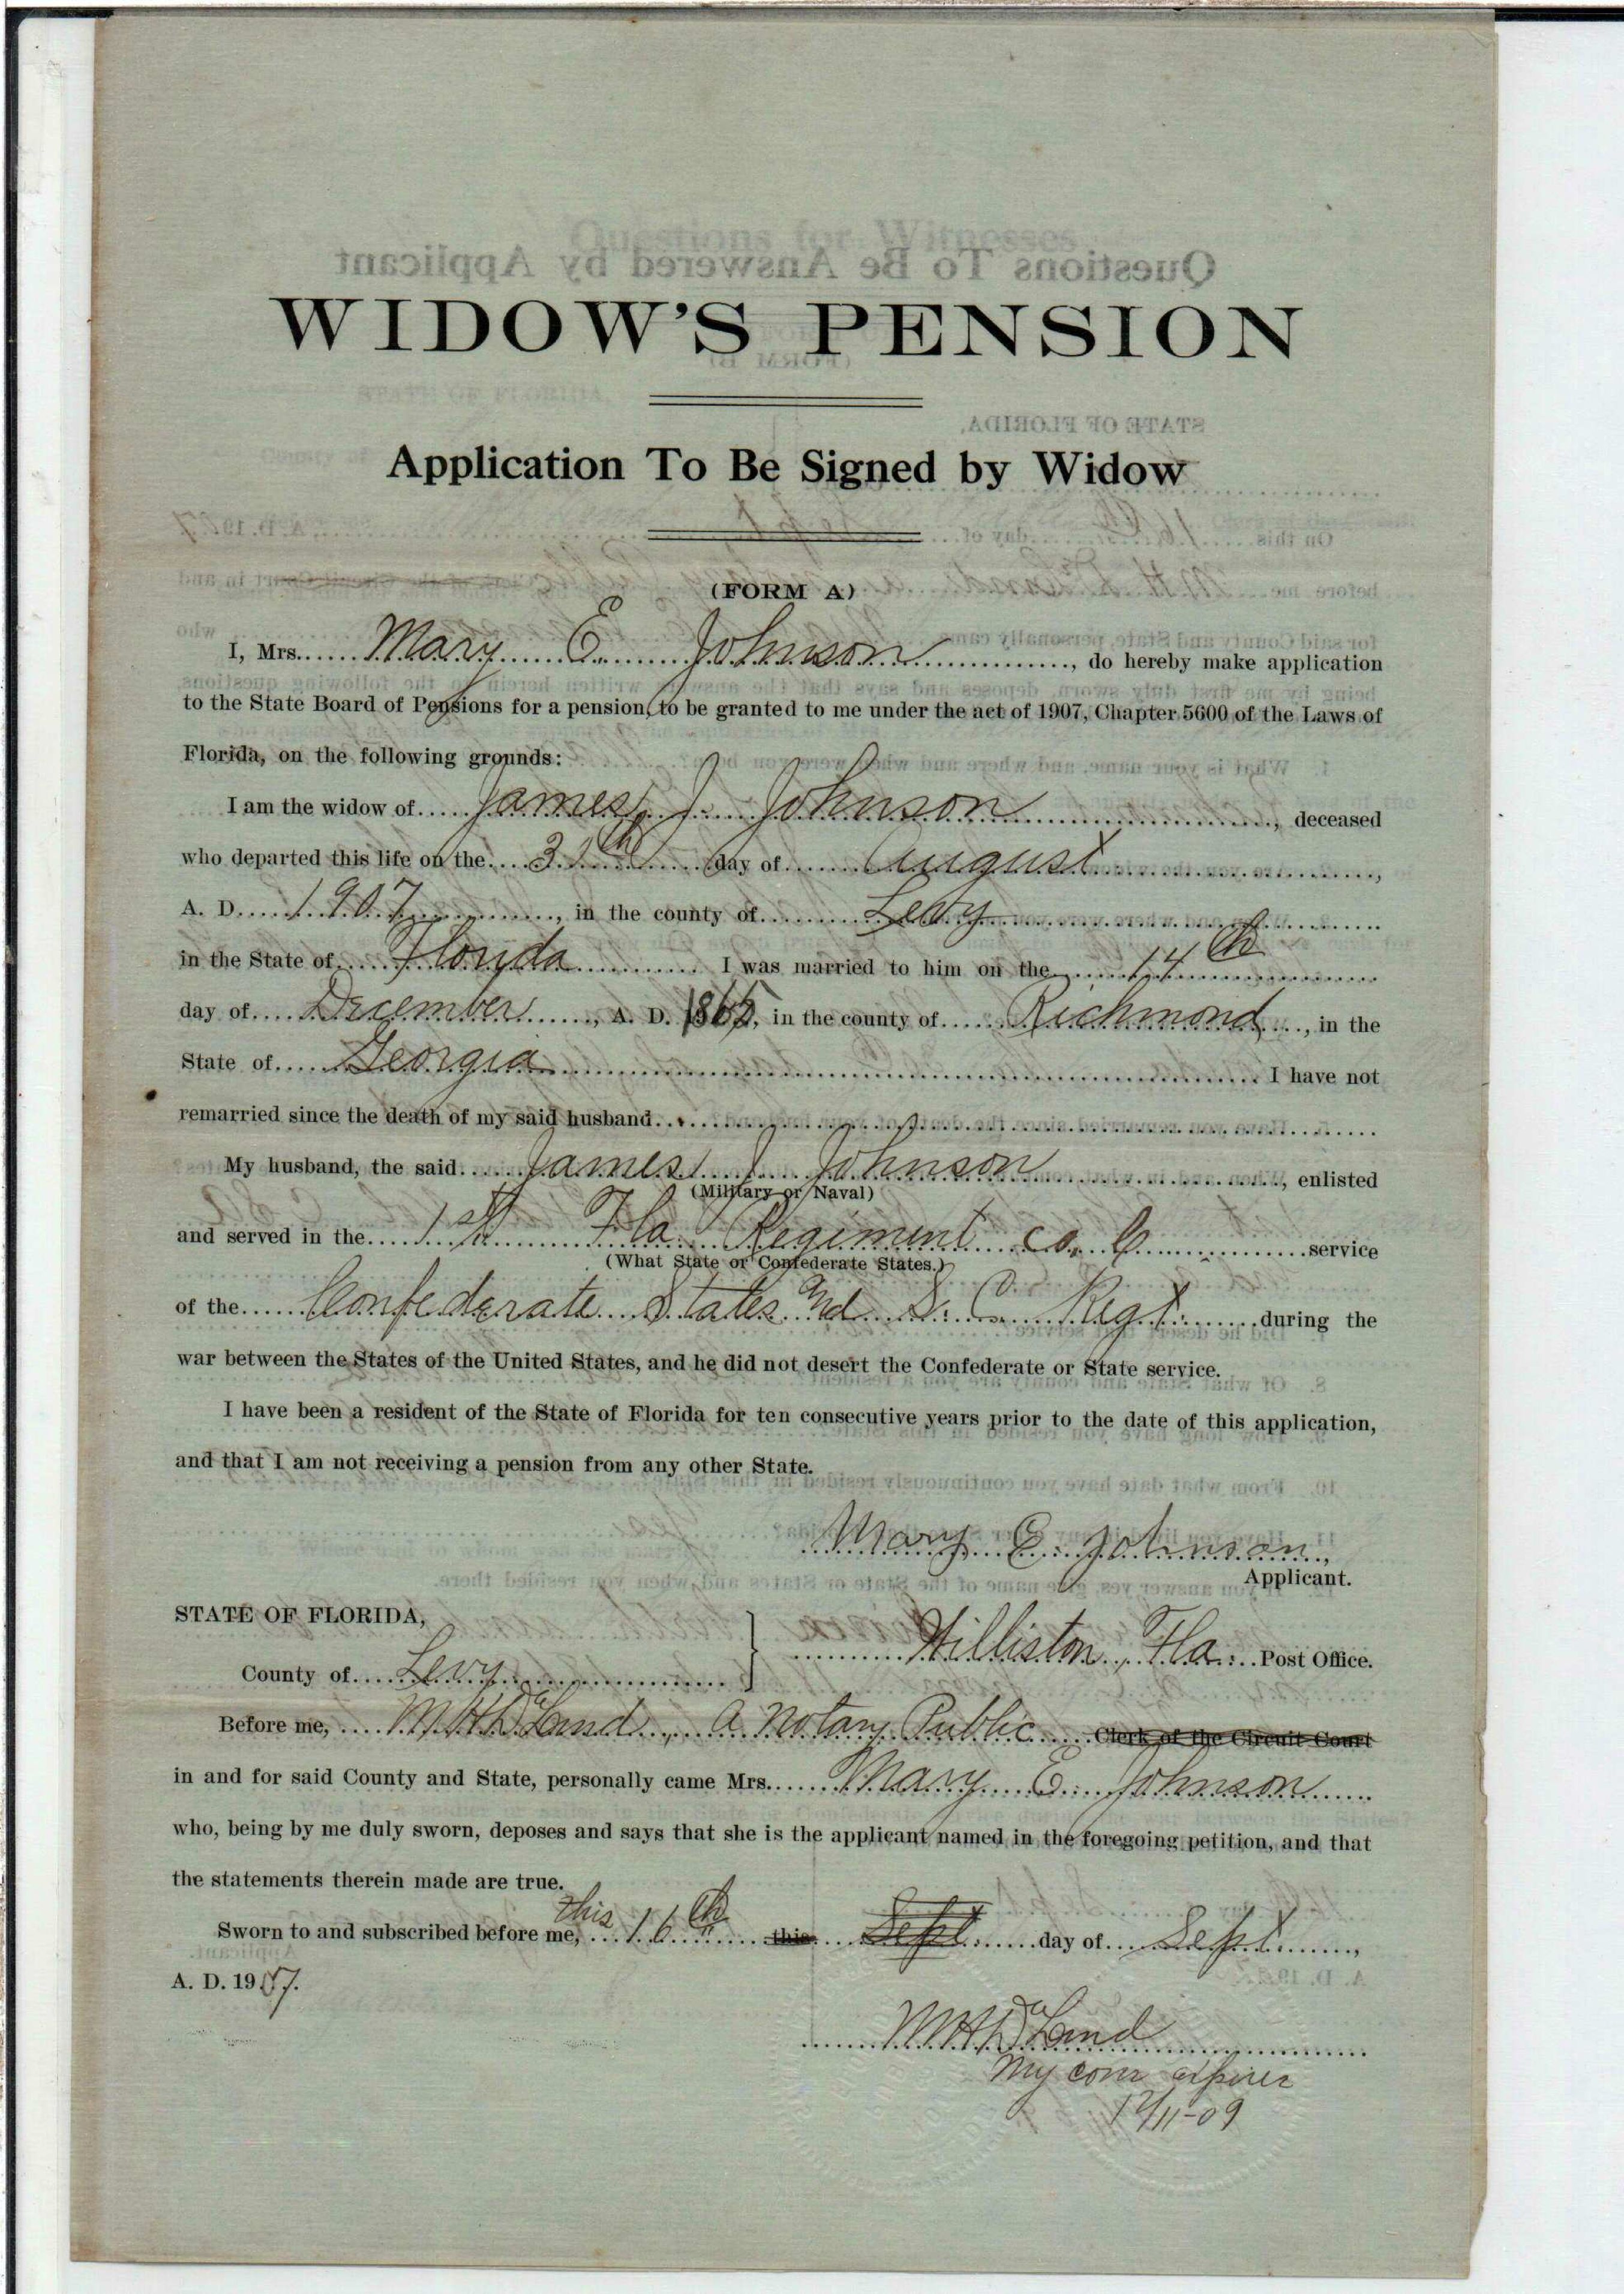 WIDOW'S PENSION
Application To Be Signed by Widow
(FORM A)
I, Mrs. Mary E. Johnson, do hereby make application
to the State Board of Pensions for a pension, to be granted to me under the act of 1907, Chapter 5600 of the Laws of
Florida, on the following grounds:
I am the widow of James J. Johnson, deceased
who departed this life on the 31th day of August,
A. D. 1907, in the county of Levy
in the State of Florida I was married to him on the 14th
day of December, A. D. 1865, in the county of Richmond, in the
State of Georgia I have not
remarried since the death of my said husband
My husband, the said James J. Johnson, enlisted
(Military or Naval)
and served in the 1st Fla Regiment co. C service
(What State or Confederate States.)
of the Confederate States 2nd S. C. Regt. during the
war between the States of the United States, and he did not desert the Confederate or State service.
I have been a resident of the State of Florida for ten consecutive years prior to the date of this application,
and that I am not receiving a pension from any other State.
Mary E. Johnson,
Applicant.
STATE OF FLORIDA,
County of Levy
Williston, Fla. Post Office.
Before me, M H DeLand, a Notary Public Clerk of the Circuit Court
in and for said County and State, personally came Mrs. Mary E. Johnson
who, being by me duly sworn, deposes and says that she is the applicant named in the foregoing petition, and that
the statements therein made are true.
Sworn to and subscribed before me, this 16th this Sept day of Sept,
A. D. 1907.
M H DeLand
My com expires
12/11-09